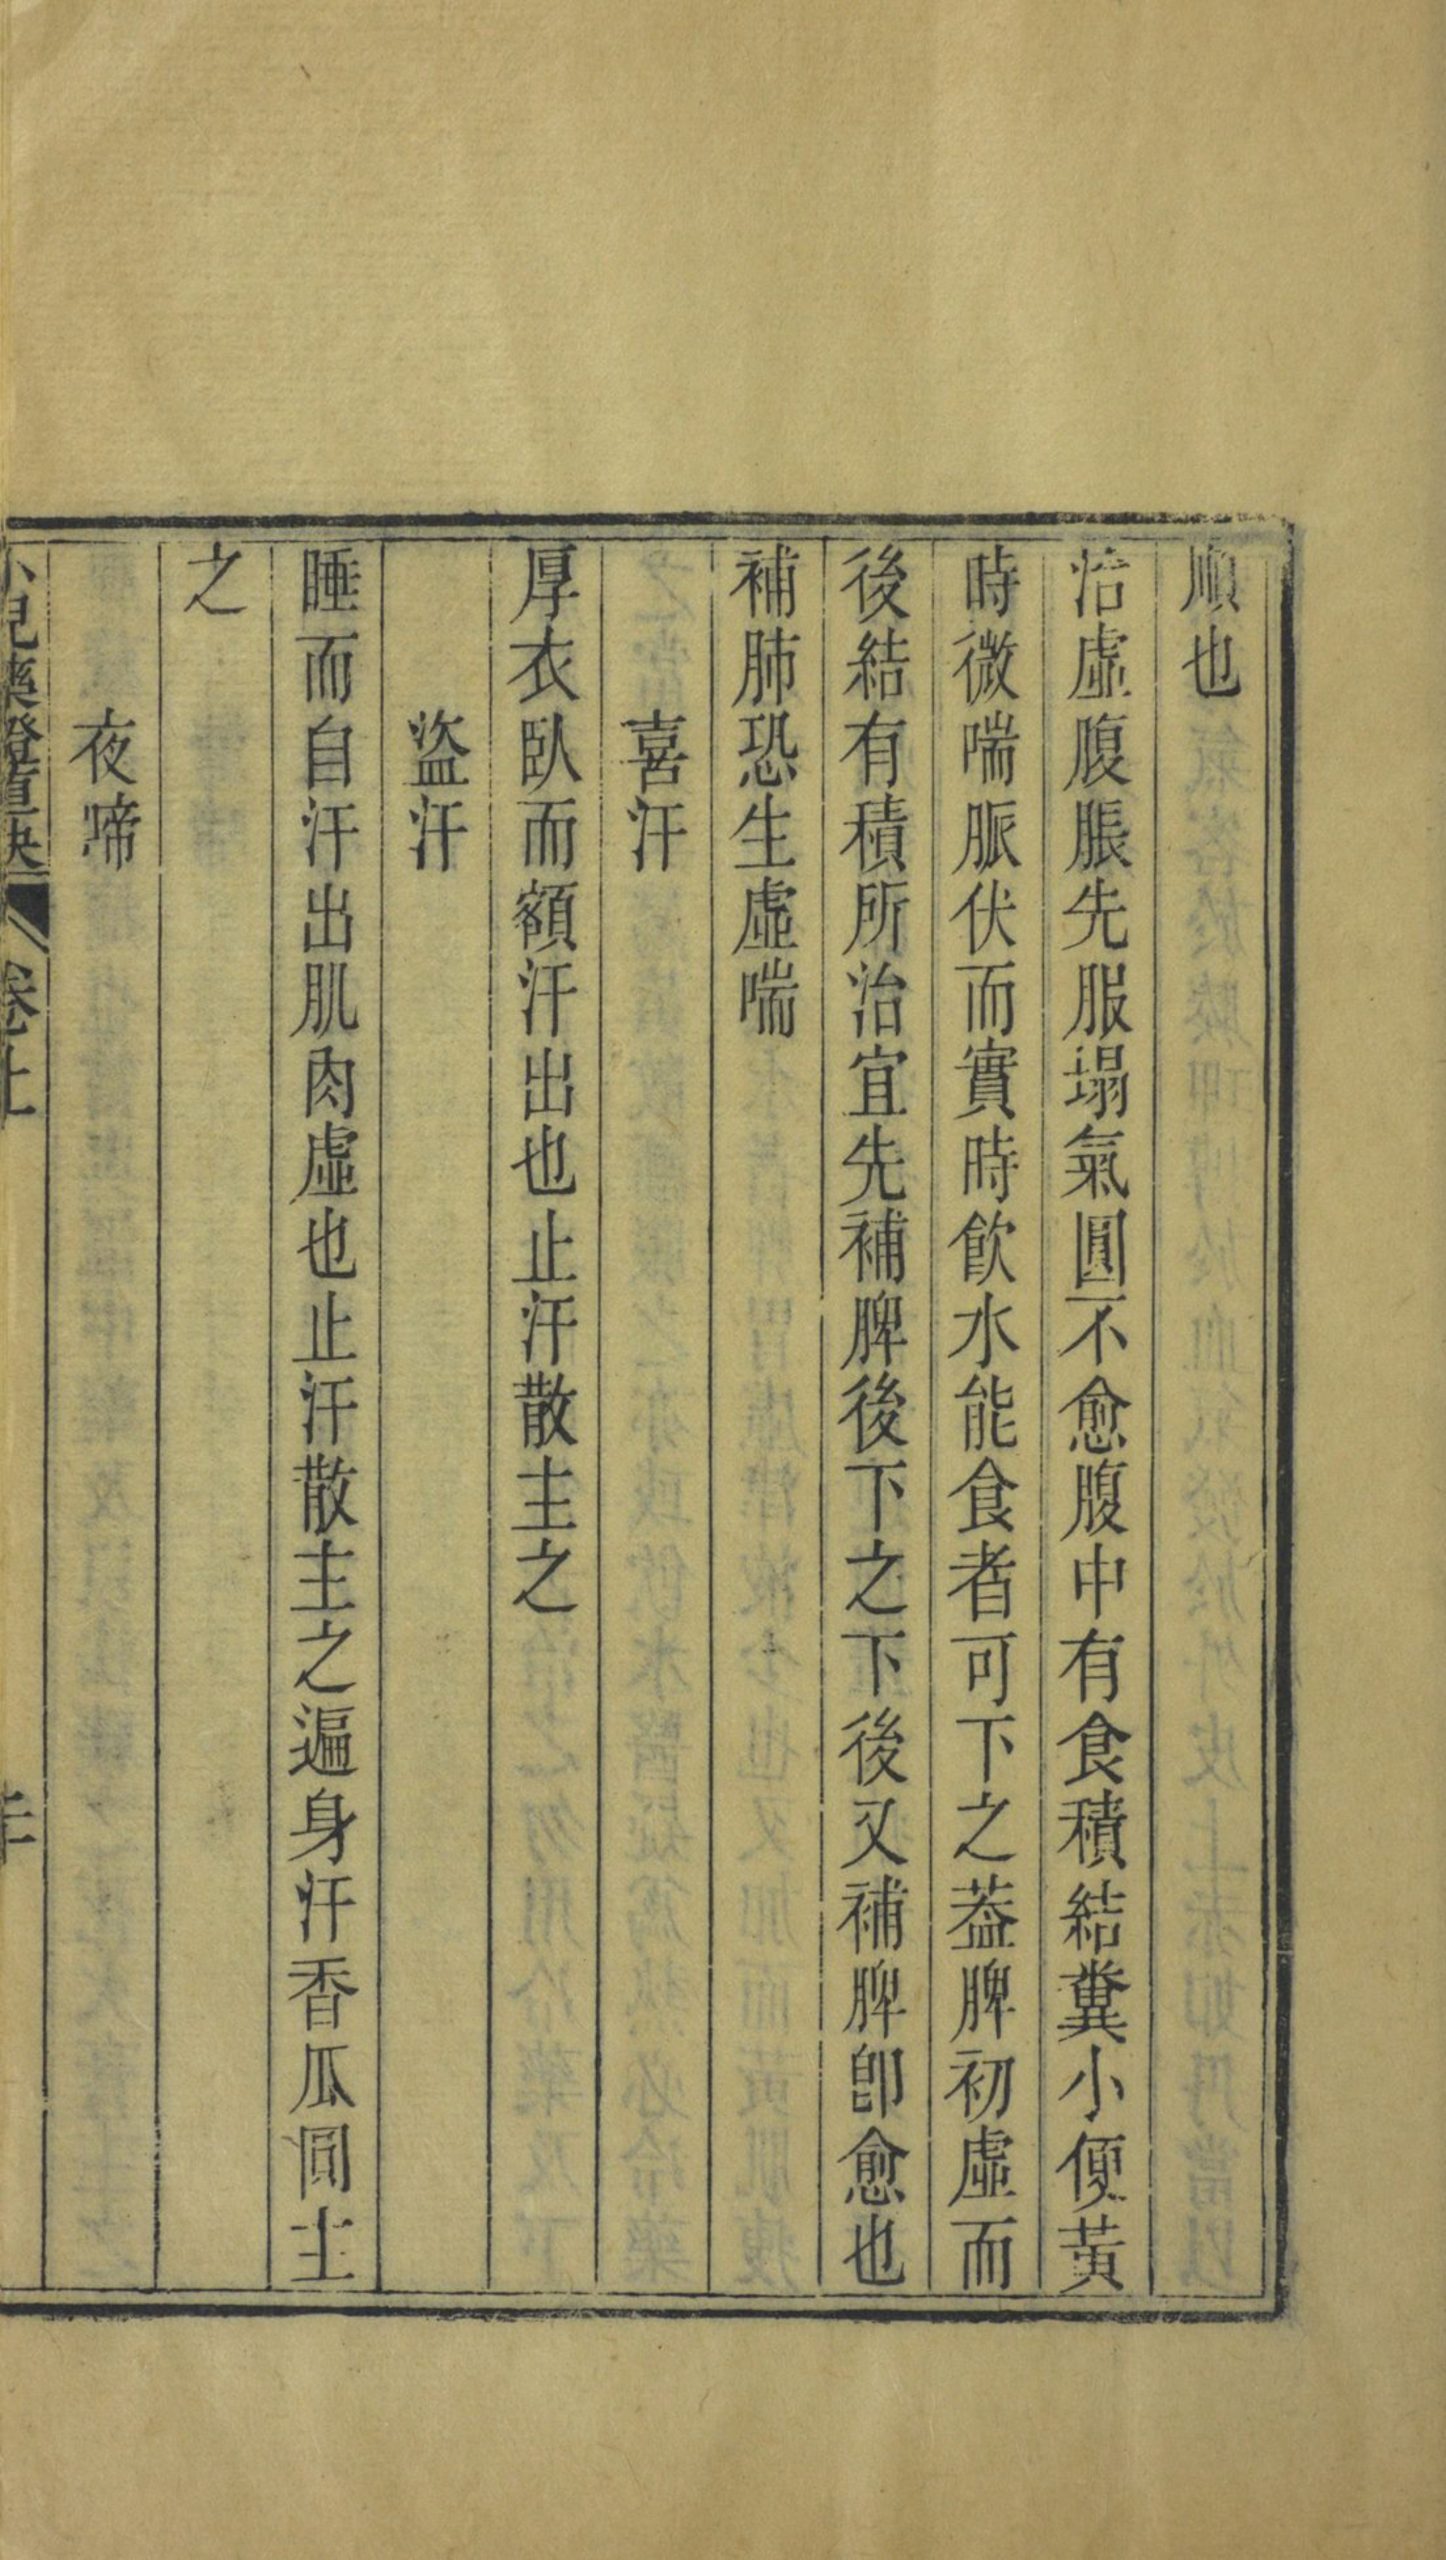 順也
治虛腹脹先服塌氣圓不愈腹中有食積結糞小便黃
時微喘脈伏而實時飲水能食者可下之葢脾初虛而
後結有積所治宜先補脾後下之下後又補脾卽愈也
補肺恐生虛喘
喜汗
厚衣臥而額汗出也止汗散主之
盜汗
睡而自汗出肌肉虛也止汗散主之遍身汗香瓜圓主
之
夜啼
小兒藥證直訣 卷上